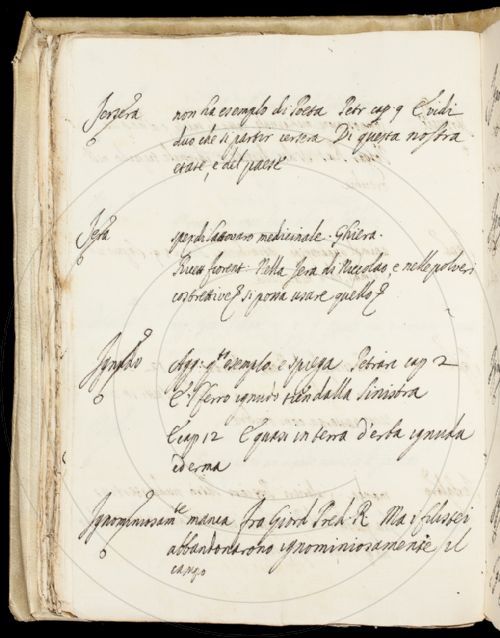 Jersera non ha esempio di Poeta Petr cap 9 E vidi
duo che si partir iersera Di questa nostra
etate, e del paese
Jera spezie di lattovaro medicinale. Ghiera.
Ricett fiorent. Nella Jera di Niccolao, e nelle polveri
costrettive si possa usare quello
Ignudo Agg: qto esempio e spiega Petrar cap 2
E 'l ferro ignudo tien dalla sinistra
E cap 12 E quasi in terra d'erba ignuda
ed erma
Ignominiosamte manca Fra Giord Pred. R Ma i filistei
abbandonarono ignominiosamente il
campo